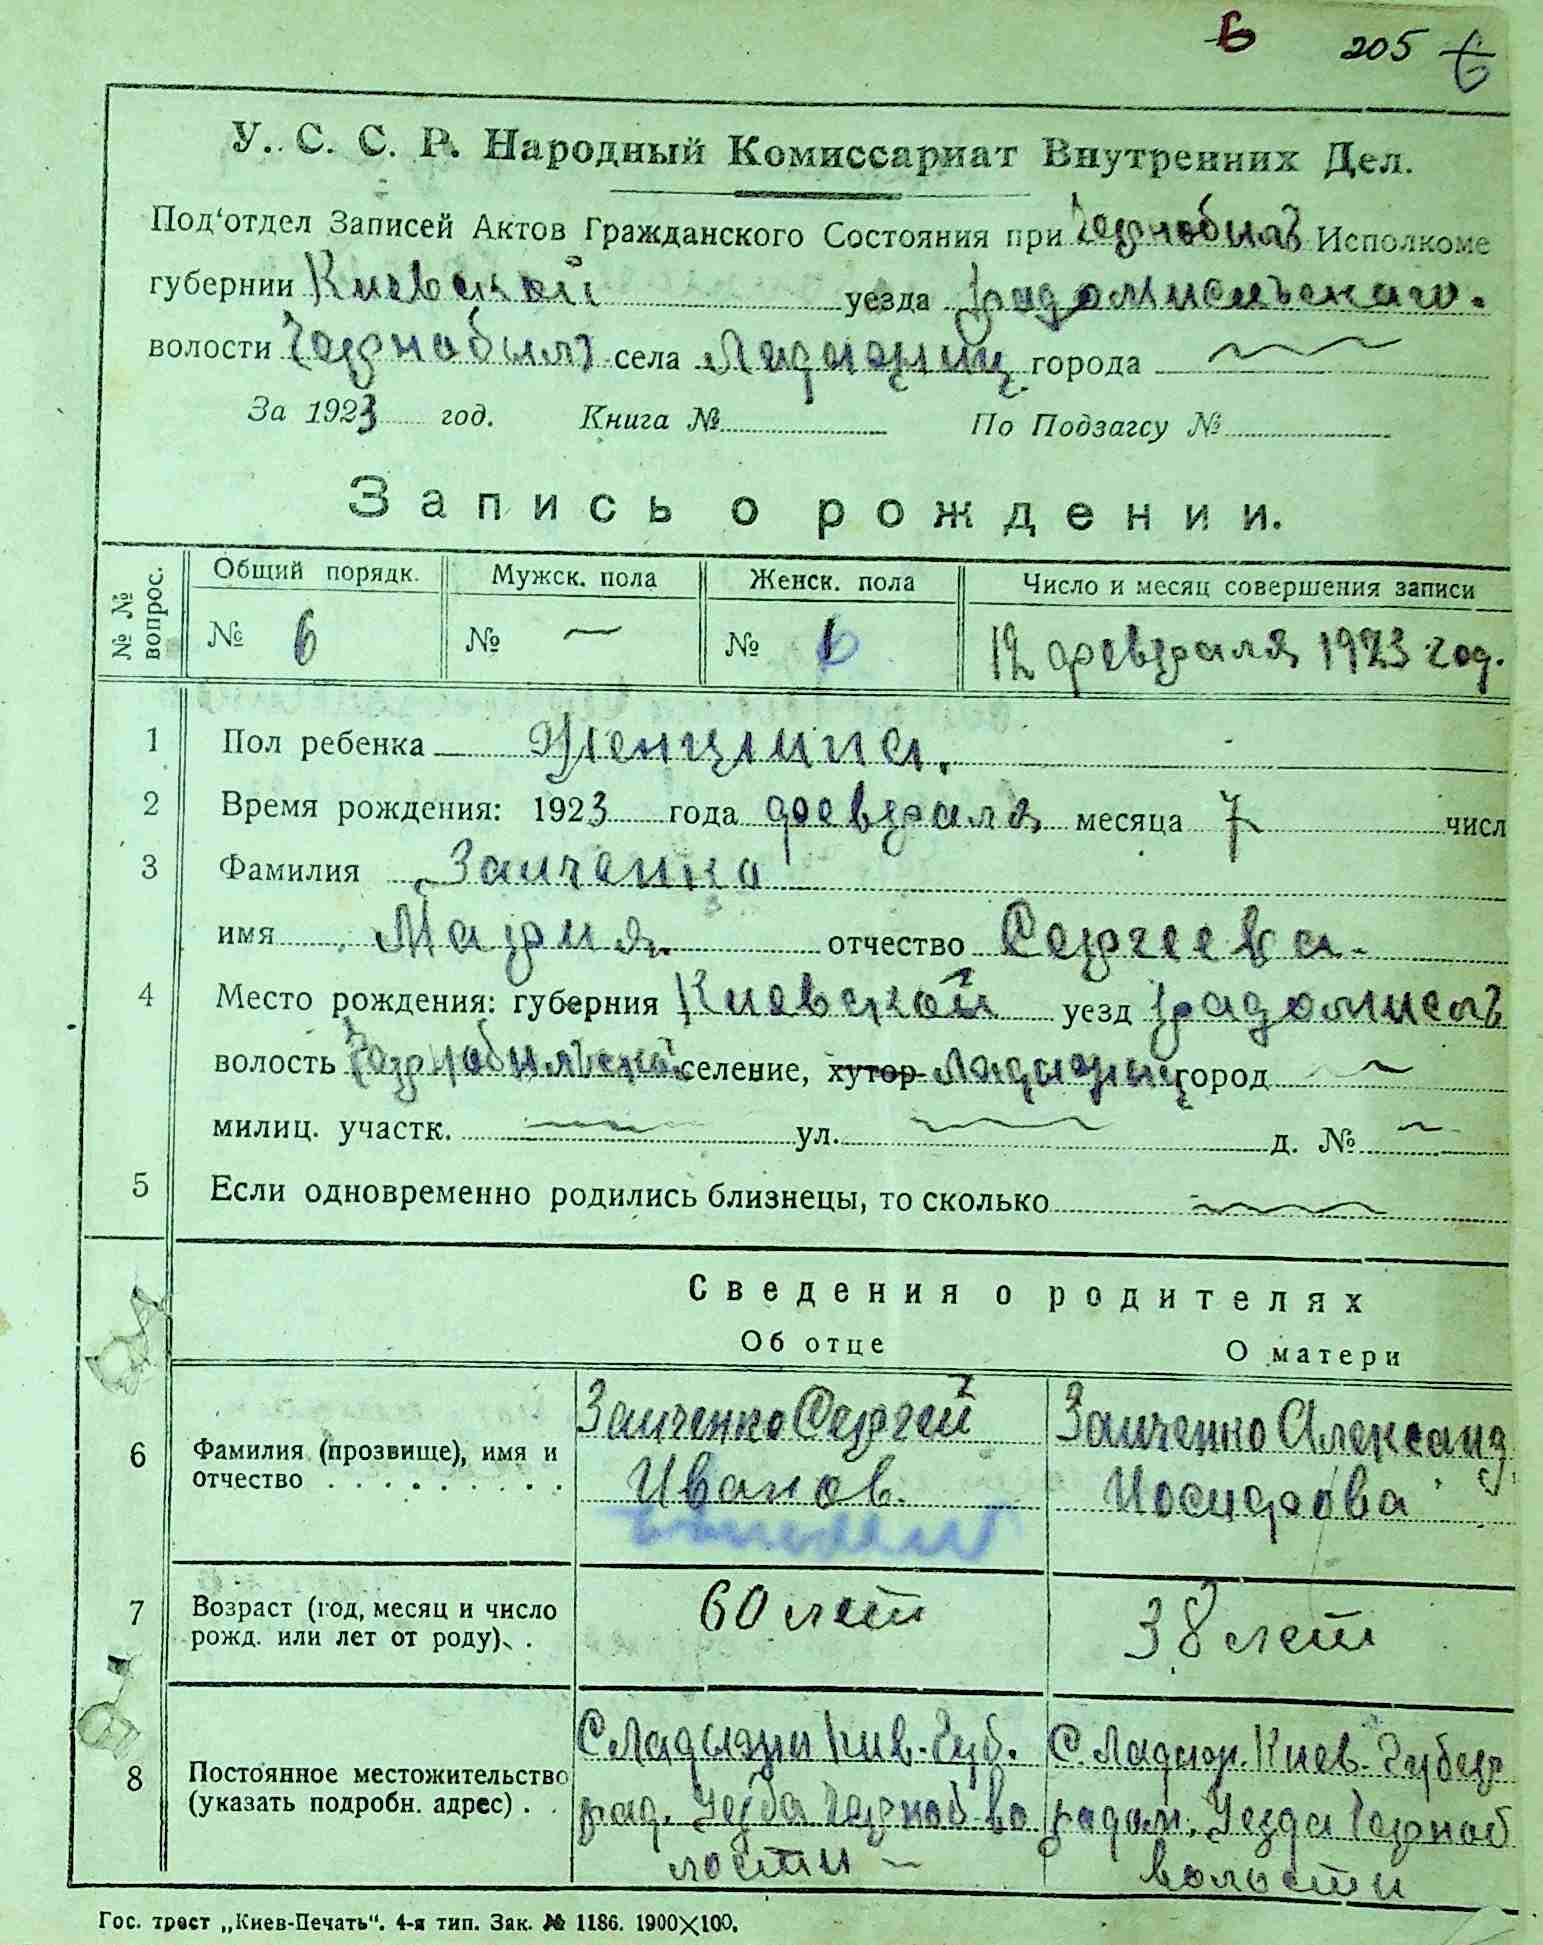 6 205 6
У. С. С. Р. Народный Комиссариат Внутренних Дел.
Под‘отдел Записей Актов Гражданского Состояния при Чернобыл Исполкоме
губернии Киевской уезда радомисльского.
волости Чернобыл села Ладыжич города
За 1923 год. Книга № По Подзагсу №
Запись о рождении.
№ № вопрос. Общий порядк. Мужск. пола Женск. пола Число и месяц совершения записи
№ 6 № — № 1 12 февраля 1923 год.
1 Пол ребенка Женщина.
2 Время рождения: 1923 года февраля месяца 7 числ
3 Фамилия Заиченко
имя Мария. отчество Сергеева.
4 Место рождения: губерния Киевской уезд радомисл
волость Чернобильской селение, хутор Ладыжич город
милиц. участк. ул. д. №
5 Если одновременно родились близнецы, то сколько
Сведения о родителях
Об отце О матери
Заиченко Сергей Заиченко Александ
6 Фамилия (прозвище), имя и
отчество Иванов. Иосифова
7 Возраст (год, месяц и число 60 лет 38 лет
рожд. или лет от роду).
С. Ладыжи Кив. Губ. С. Ладыж. Киев. Губер
8 Постоянное местожительство
(указать подробн. адрес) рад. Уезда Черноб во радом. Уезда Черноб
лости волости
Гос. трест „Киев-Печать“. 4-я тип. Зак. № 1186. 1900×100.